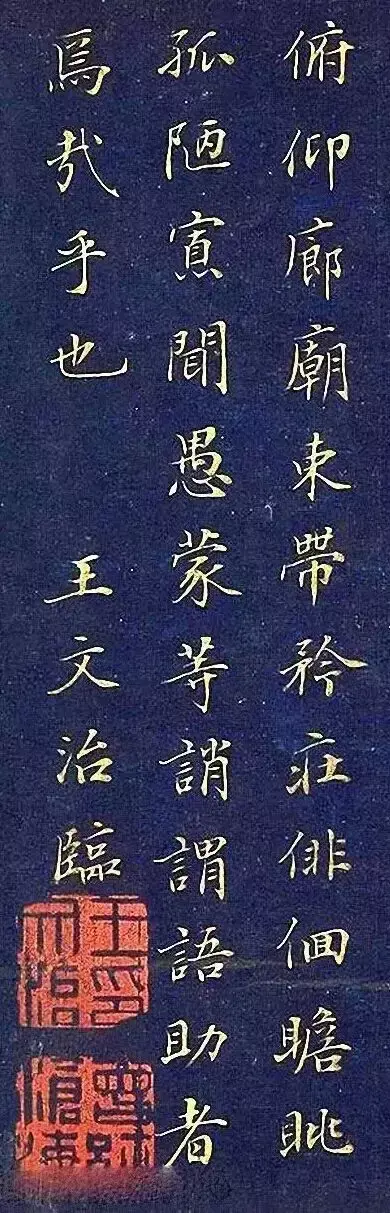 俯仰廊廟束帶矜莊俳佪瞻眺
孤陋寡聞愚蒙等誚謂語助者
焉哉乎也 王文治臨
王文治印
曾經滄海